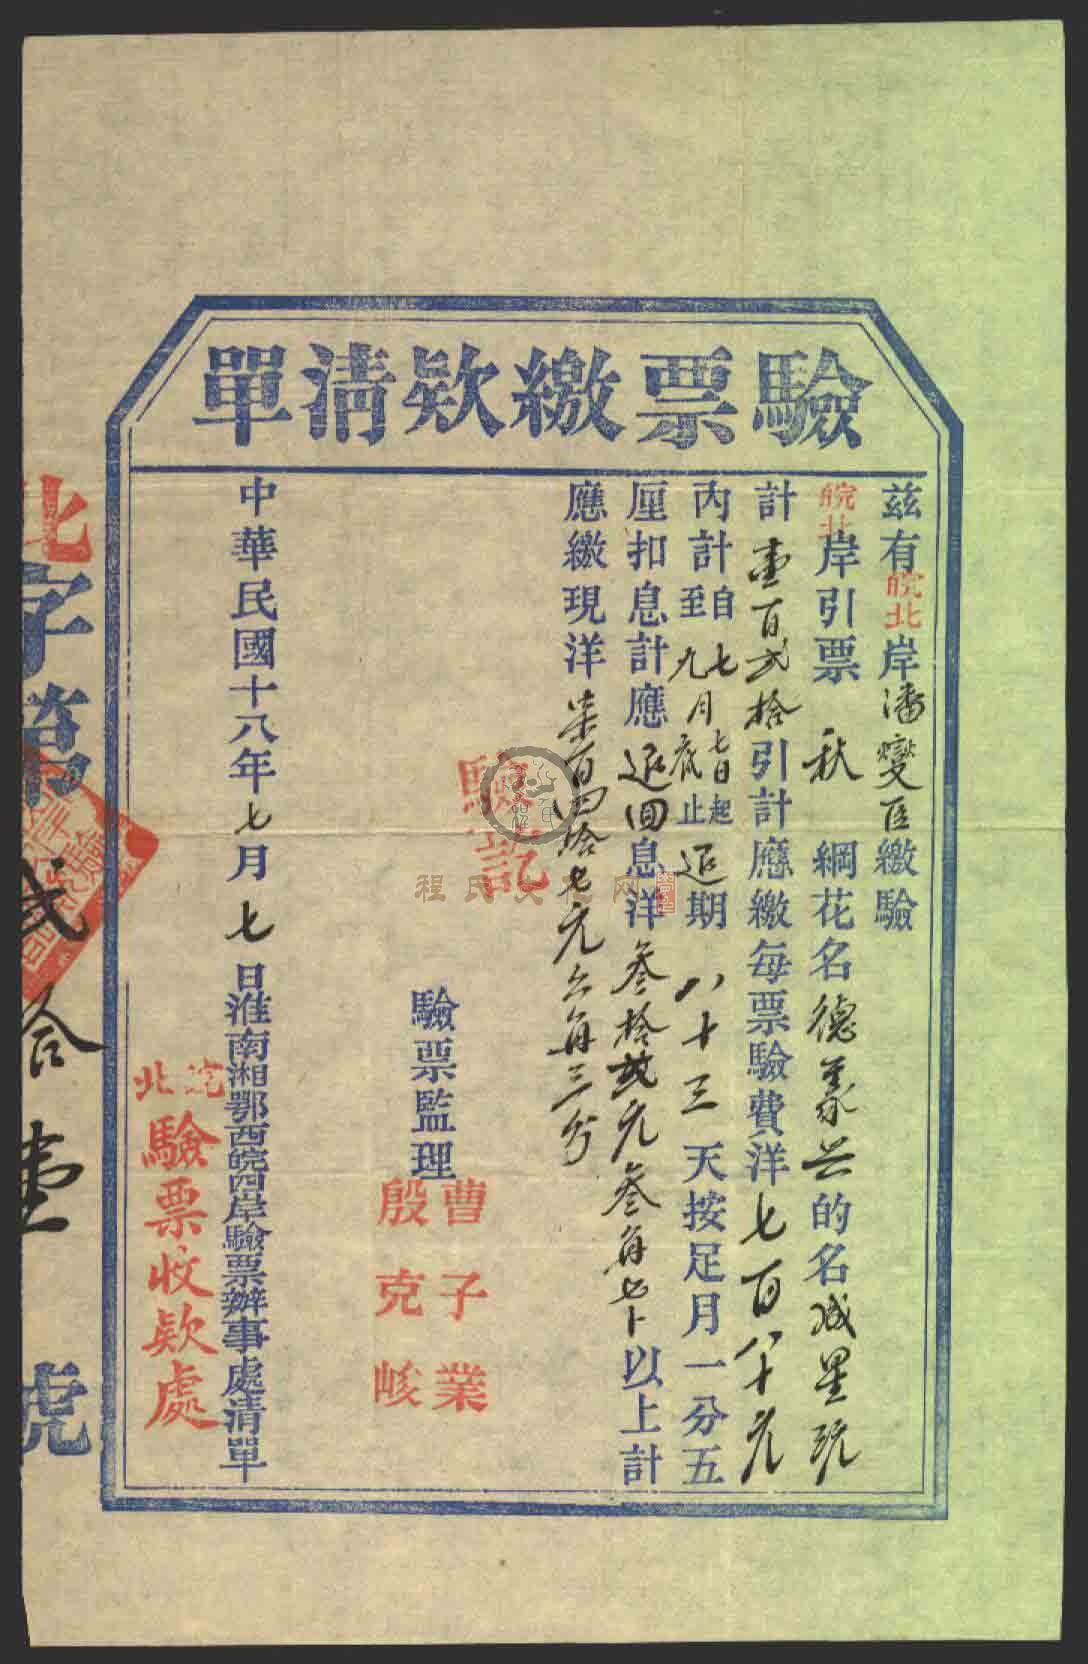 驗票繳欵清單
茲有皖北岸潘燮臣繳驗
皖北岸引票 秋 綱花名德義興的名成星玩
計壹百弍拾引計應繳每票驗費洋七百八十元
內計自七月七日起至九月底止 近期 八十三天按足月一分五
厘扣息計應退回息洋叁拾弍元叁角七卜以上計
應繳現洋柒百四拾七元六角三分
驗訖
驗票監理 曹子業 殷克峻
中華民國十八年七月七日淮南湘鄂西皖四岸驗票辦事處清單
皖北驗票收欵處
北字第弍拾壹號
程氏文化网